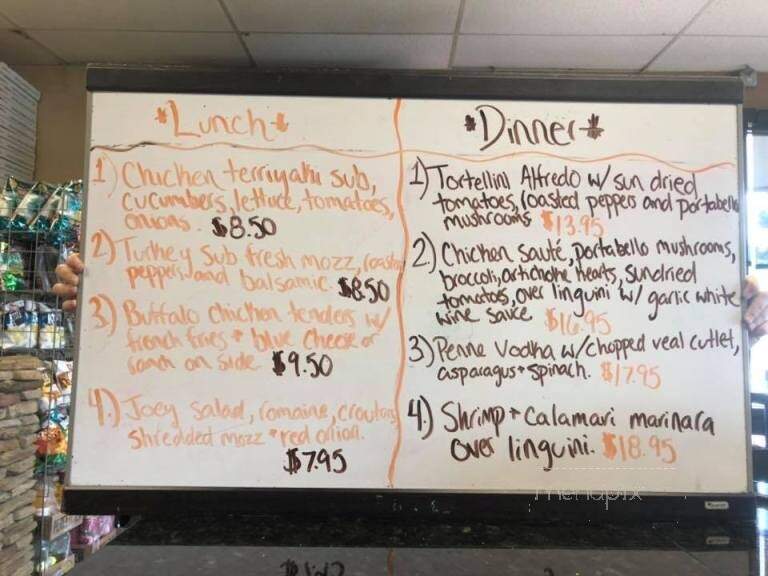 *Lunch*
1) Chicken terriyaki sub,
cucumbers, lettuce, tomatoes,
onions. $8.50
2) Turkey sub fresh mozz, roasted
peppers and balsamic $8.50
3) Buffalo chicken tenders w/
french fries + blue cheese or
ranch on side $9.50
4.) Joey salad, romaine, croutons,
shredded mozz + red onion.
$7.95
*Dinner*
1) Tortellini Alfredo w/ sun dried
tomatoes, roasted peppers and portabello
mushrooms $13.95
2.) Chicken sauté, portabello mushrooms,
broccoli, artichoke hearts, sundried
tomatoes, over linguini w/ garlic white
wine sauce $16.95
3) Penne Vodka w/ chopped veal cutlet,
asparagus + spinach. $17.95
4.) Shrimp + calamari marinara
over linguini. $18.95
menupix